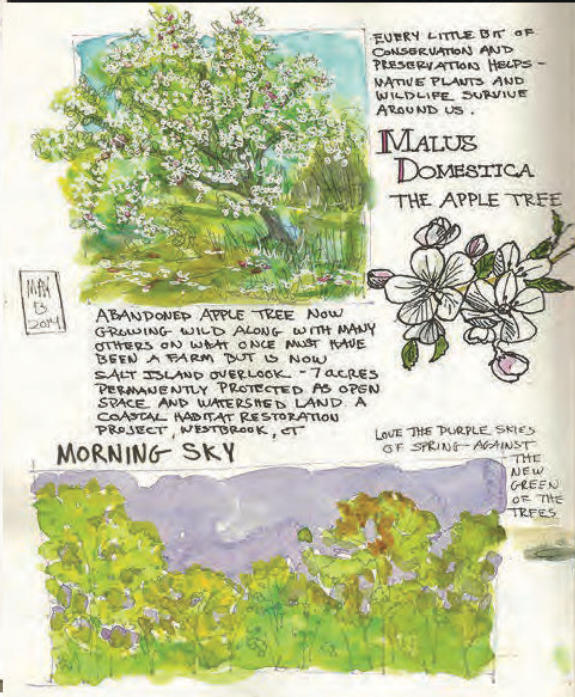 EVERY LITTLE BIT OF
CONSERVATION AND
PRESERVATION HELPS -
NATIVE PLANTS AND
WILDLIFE SURVIVE
AROUND US.
MALUS
DOMESTICA
THE APPLE TREE
MAY
13
2014
ABANDONED APPLE TREE NOW
GROWING WILD ALONG WITH MANY
OTHERS ON WHAT ONCE MUST HAVE
BEEN A FARM BUT IS NOW
SALT ISLAND OVERLOOK - 7 ACRES
PERMANENTLY PROTECTED AS OPEN
SPACE AND WATERSHED LAND. A
COASTAL HABITAT RESTORATION
PROJECT, WESTBROOK, CT
MORNING SKY
LOVE THE PURPLE SKIES
OF SPRING - AGAINST
THE
NEW
GREEN
OF THE
TREES